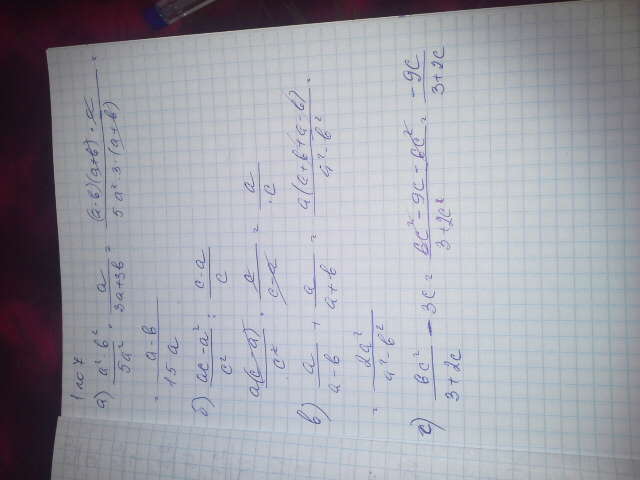 1 no 7
а) a² b² / 5a² · a / 3a+3b = (a-b)(a+b)·a / 5a²·3·(a+b) =
= a-b / 15a
б) ac-a² / c² : c-a / c
a(c-a) / c² · c / c-a = a / c
в) a / a-b + a / a+b = a(a+b+a-b) / a²-b² =
= 2a² / a²-b²
г) 6c² / 3+2c - 3c = 6c²-9c-6c² / 3+2c² = -9c / 3+2c